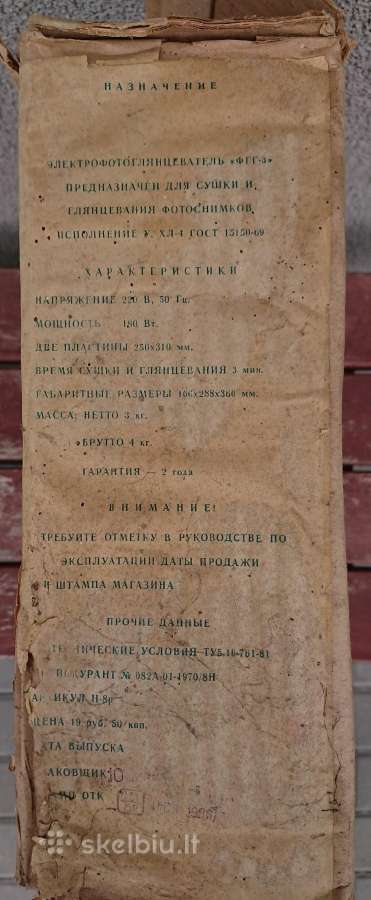 НАЗНАЧЕНИЕ
ЭЛЕКТРОФОТОГЛЯНЦЕВАТЕЛЬ «ФГГ-3»
ПРЕДНАЗНАЧЕН ДЛЯ СУШКИ И
ГЛЯНЦЕВАНИЯ ФОТОСНИМКОВ
ИСПОЛНЕНИЕ У, ХЛ-4 ГОСТ 15150-69
ХАРАКТЕРИСТИКИ
НАПРЯЖЕНИЕ 220 В, 50 Гц.
МОЩНОСТЬ 180 Вт.
ДВЕ ПЛАСТИНЫ 250х310 мм.
ВРЕМЯ СУШКИ И ГЛЯНЦЕВАНИЯ 3 мин.
ГАБАРИТНЫЕ РАЗМЕРЫ 166х288х360 мм.
МАССА: НЕТТО 3 кг.
БРУТТО 4 кг.
ГАРАНТИЯ — 2 года
ВНИМАНИЕ!
ТРЕБУЙТЕ ОТМЕТКУ В РУКОВОДСТВЕ ПО
ЭКСПЛУАТАЦИИ ДАТЫ ПРОДАЖИ
И ШТАМПА МАГАЗИНА
ПРОЧИЕ ДАННЫЕ
ИЧЕСКИЕ УСЛОВИЯ ТУ5.16-761-81
КУРАНТ № 082А-01-1970/8Н
ИКУЛ
ЦЕНА 19 руб. 50 коп.
АТА ВЫПУСКА
АКОВЩИК 10
ОТК
skelbiu.lt